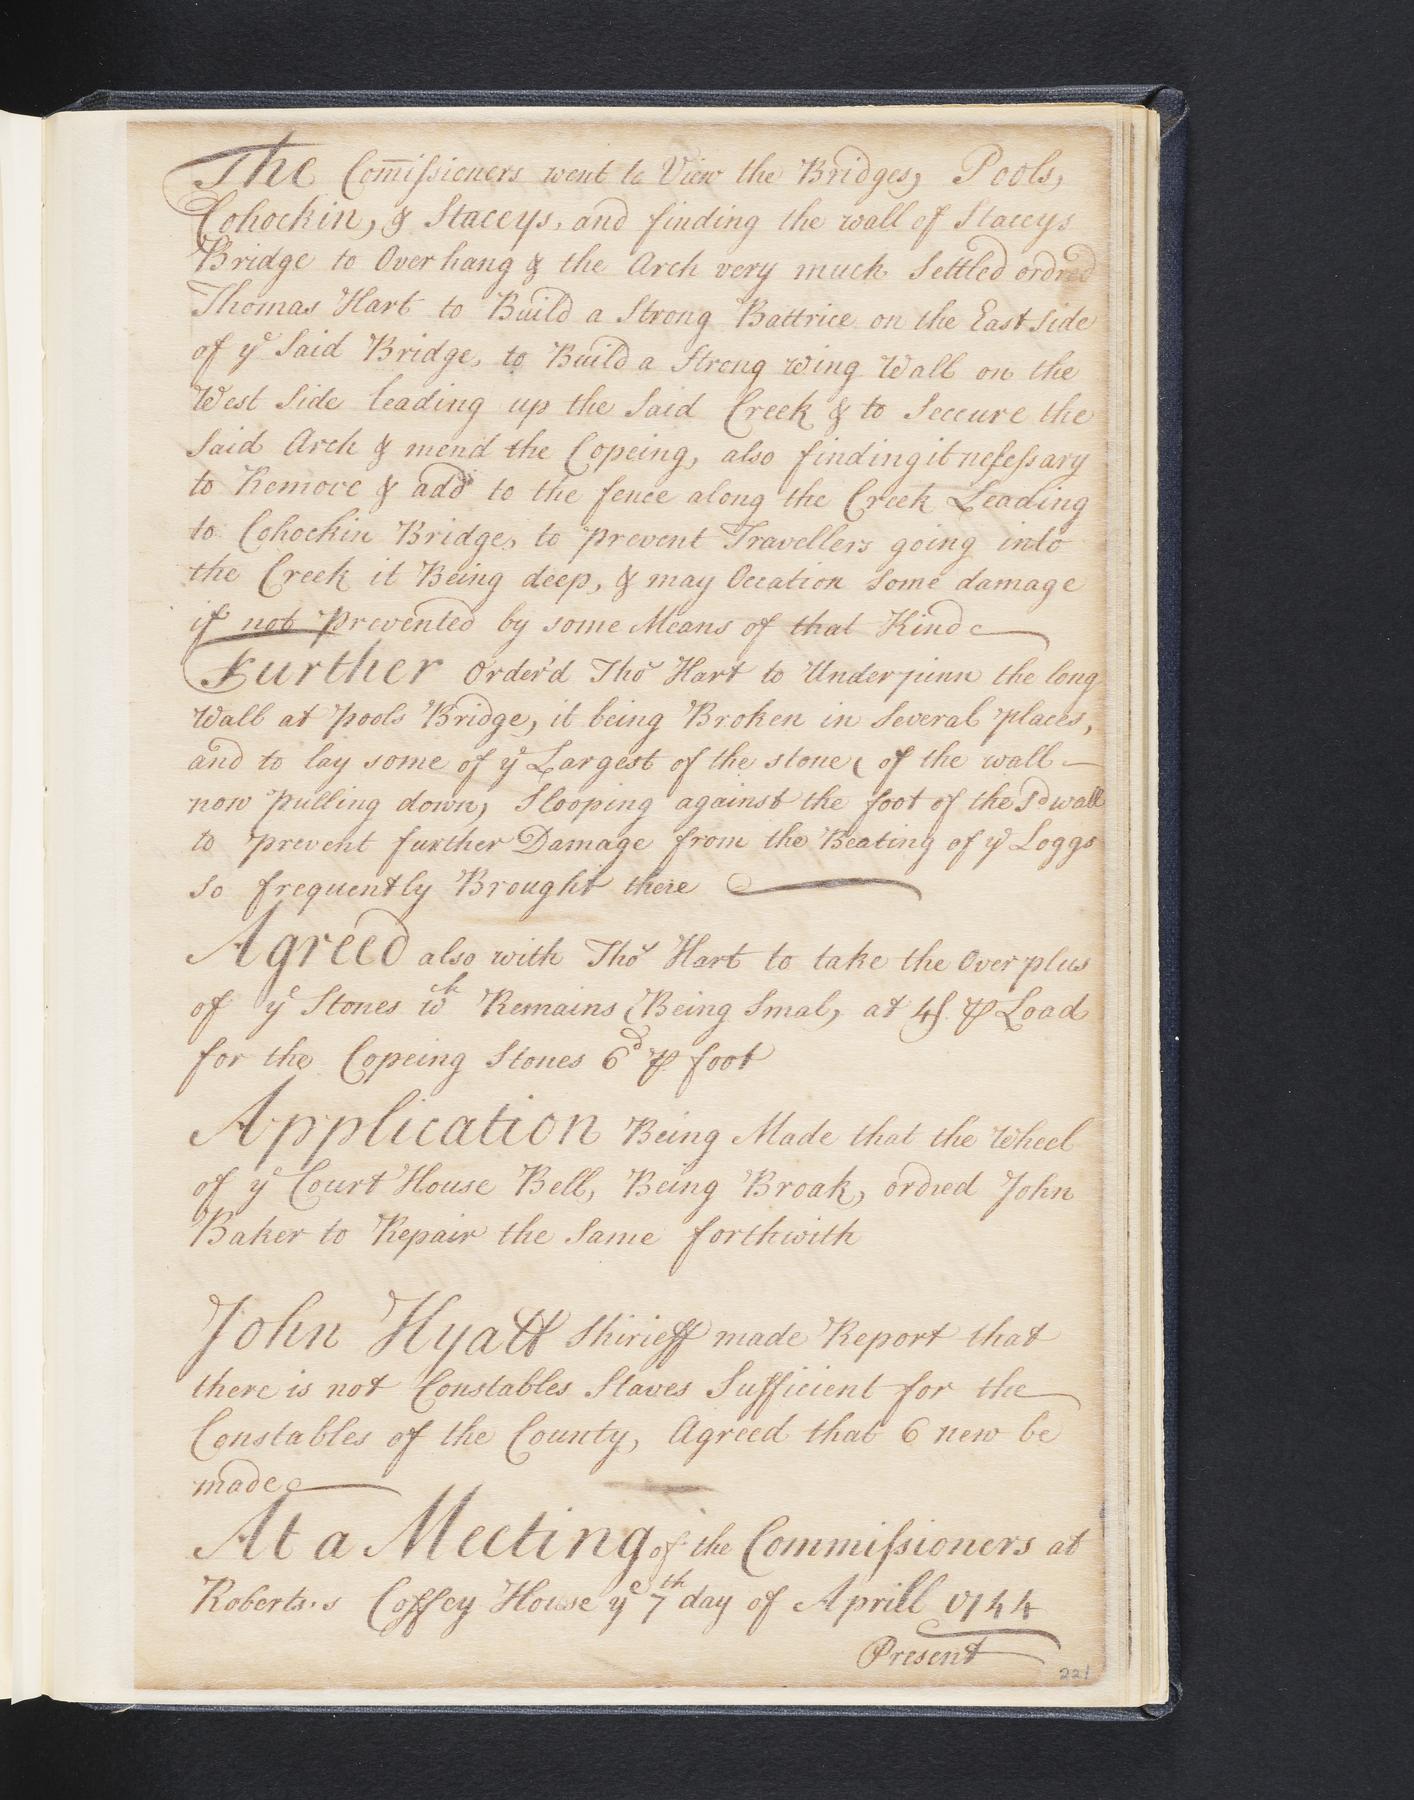 The Com̅iſsioners went to View the Bridges, Pools,
Cohockin, & Staceys, and finding the wall of Staceys
Bridge to Over hang & the Arch very much Settled ordred
Thomas Hart to Build a Strong Battrice on the East Side
of yᵉ Said Bridge, to Build a Strong wing Wall on the
West Side leading up the Said Creek & to Seccure the
Said Arch & mend the Copeing, also finding it neſeſsary
to Remove & add to the fence along the Creek Leading
to Cohockin Bridge, to prevent Travellers going into
the Creek it Being deep, & may Occation Some damage
if not Prevented by some Means of that Kind
Further Order'd Thoˢ Hart to Underpinn the long
Wall at Pools Bridge, it being Broken in Several places,
and to lay some of yᵉ Largest of the stone ( of the wall
now pulling down, Slooping against the foot of the Sᵈ wall
to prevent further Damage from the Beating of yᵉ Loggs
So frequently Brought there
Agreed also with Thoˢ Hart to take the Over plus
of yᵉ Stones wᶜʰ Remains (Being Smal, at 4ſ. ⅌ Load
for the Copeing Stones 6ᵈ ⅌ foot
Application Being Made that the Wheel
of yᵉ Court House Bell, Being Broak, ordred John
Baker to Repair the Same forthwith
John Hyatt Shirieff made Report that
there is not Constables Staves Sufficient for the
Constables of the County, Agreed that 6 new be
made
At a Meeting of the Commiſsioners at
Roberts's Coffey House yᵉ 7ᵗʰ day of Aprill 1744
Present
221